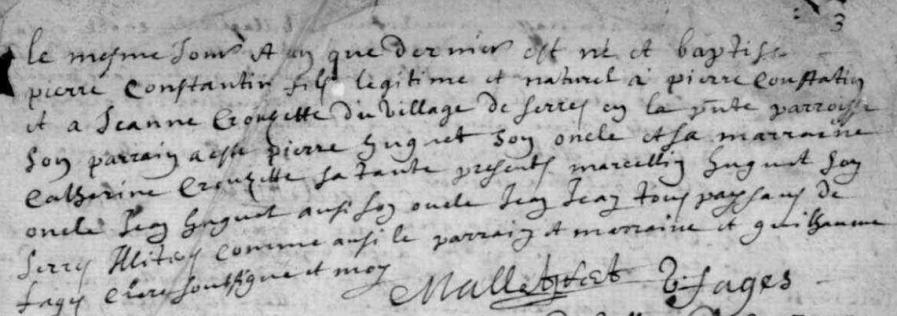 3
le mesme jour et an que dernier est né et baptisé
pierre Constantin fils legitime et naturel a pierre Constatin
et a Jeanne Crouzette du village de serres en la pnte parroisse
son parrain a esté pierre huguet son oncle et sa marraine
Catherine Crouzette sa tante presents marcellin huguet son
oncle Jean huguet aussi son oncle Jean Jean tous paysans de
serres illiteres comme aussi le parrain et marraine et guilhaume
fages clerc soussigné et moy
Mallet fages